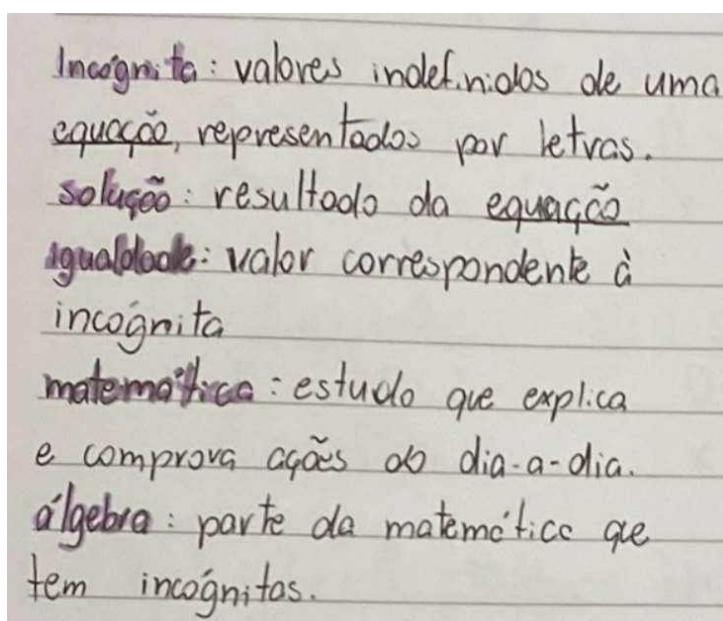 Incógnita: valores indefinidos de uma
equação, representados por letras.
solução: resultado da equação
igualdade: valor correspondente à
incógnita
matemática: estudo que explica
e comprova ações do dia-a-dia.
álgebra: parte da matemática que
tem incógnitas.